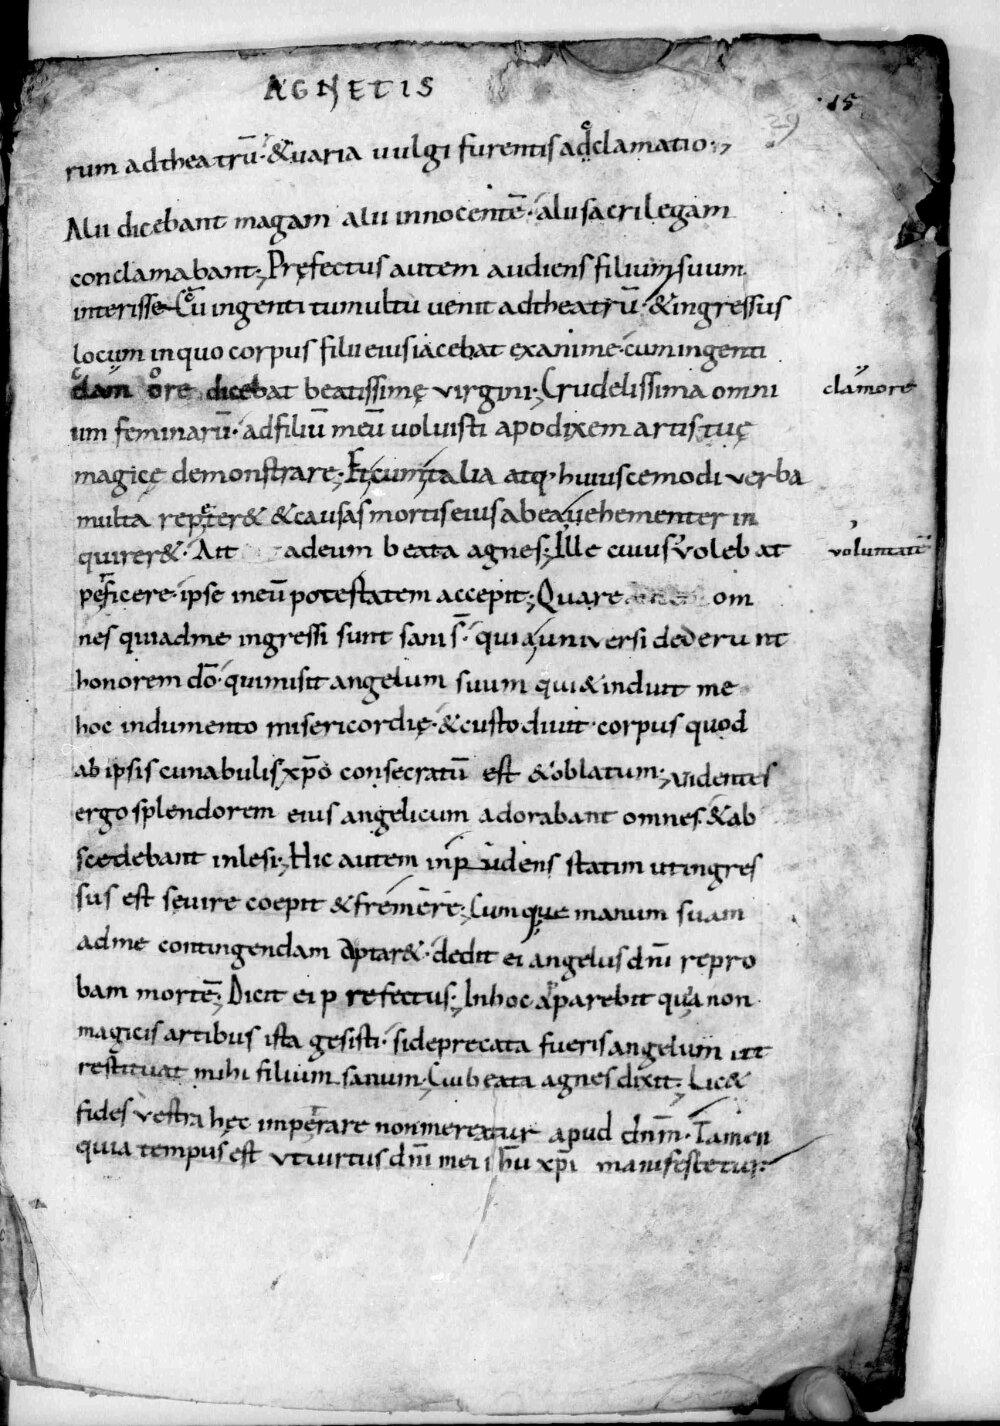 AGNETIS
15
29
rum ad theatrū· & varia vulgi furentis adclamatio·,
Alii dicebant magam alii innocentē· alii sacrilegam
conclamabant; Pręfectus autem audiens filium suum
interisse Cū ingenti tumultu venit ad theatrū· & ingressus
locum in quo corpus filii eius iacebat exanime· cum ingenti
clam ore dicebat beatissimę virgini; Crudelissima omni
clamore
um feminarū· ad filiū meū voluisti apodixem artis tuę
magicę demonstrare; Et cum talia atq· huiuscemodi verba
multa repeter& & causas mortis eius ab ea vehementer in
quirer&· Ait ad eum beata agnes; Ille cuius volebat
voluntatē
perficere· ipse in eū potestatem accepit; Quare om
nes qui ad me ingressi sunt sani s̄· quia universi dederunt
honorem dō· qui misit angelum suum qui & induit me
hoc indumento misericordię· & custodivit corpus quod
ab ipsis cunabulis xp̄o consecratū est & oblatum; videntes
ergo splendorem eius angelicum adorabant omnes· & ab
scedebant inlesi; Hic autem inpudens statim ut ingres
sus est sevire coepit & fremere; Cumque manum suam
ad me contingendam aptar&· dedit ei angelus dn̄i repro
bam mortē; Dicit ei prefectus; In hoc apparebit quia non
magicis artibus ista gesisti· si deprecata fueris angelum ut
restituat mihi filium sanum; Cui beata agnes dixit; Lic&
fides vestra hęc imperrare non mereatur apud dn̄m· Tamen
quia tempus est ut virtus dn̄i mei ihū xp̄i manifestetur·